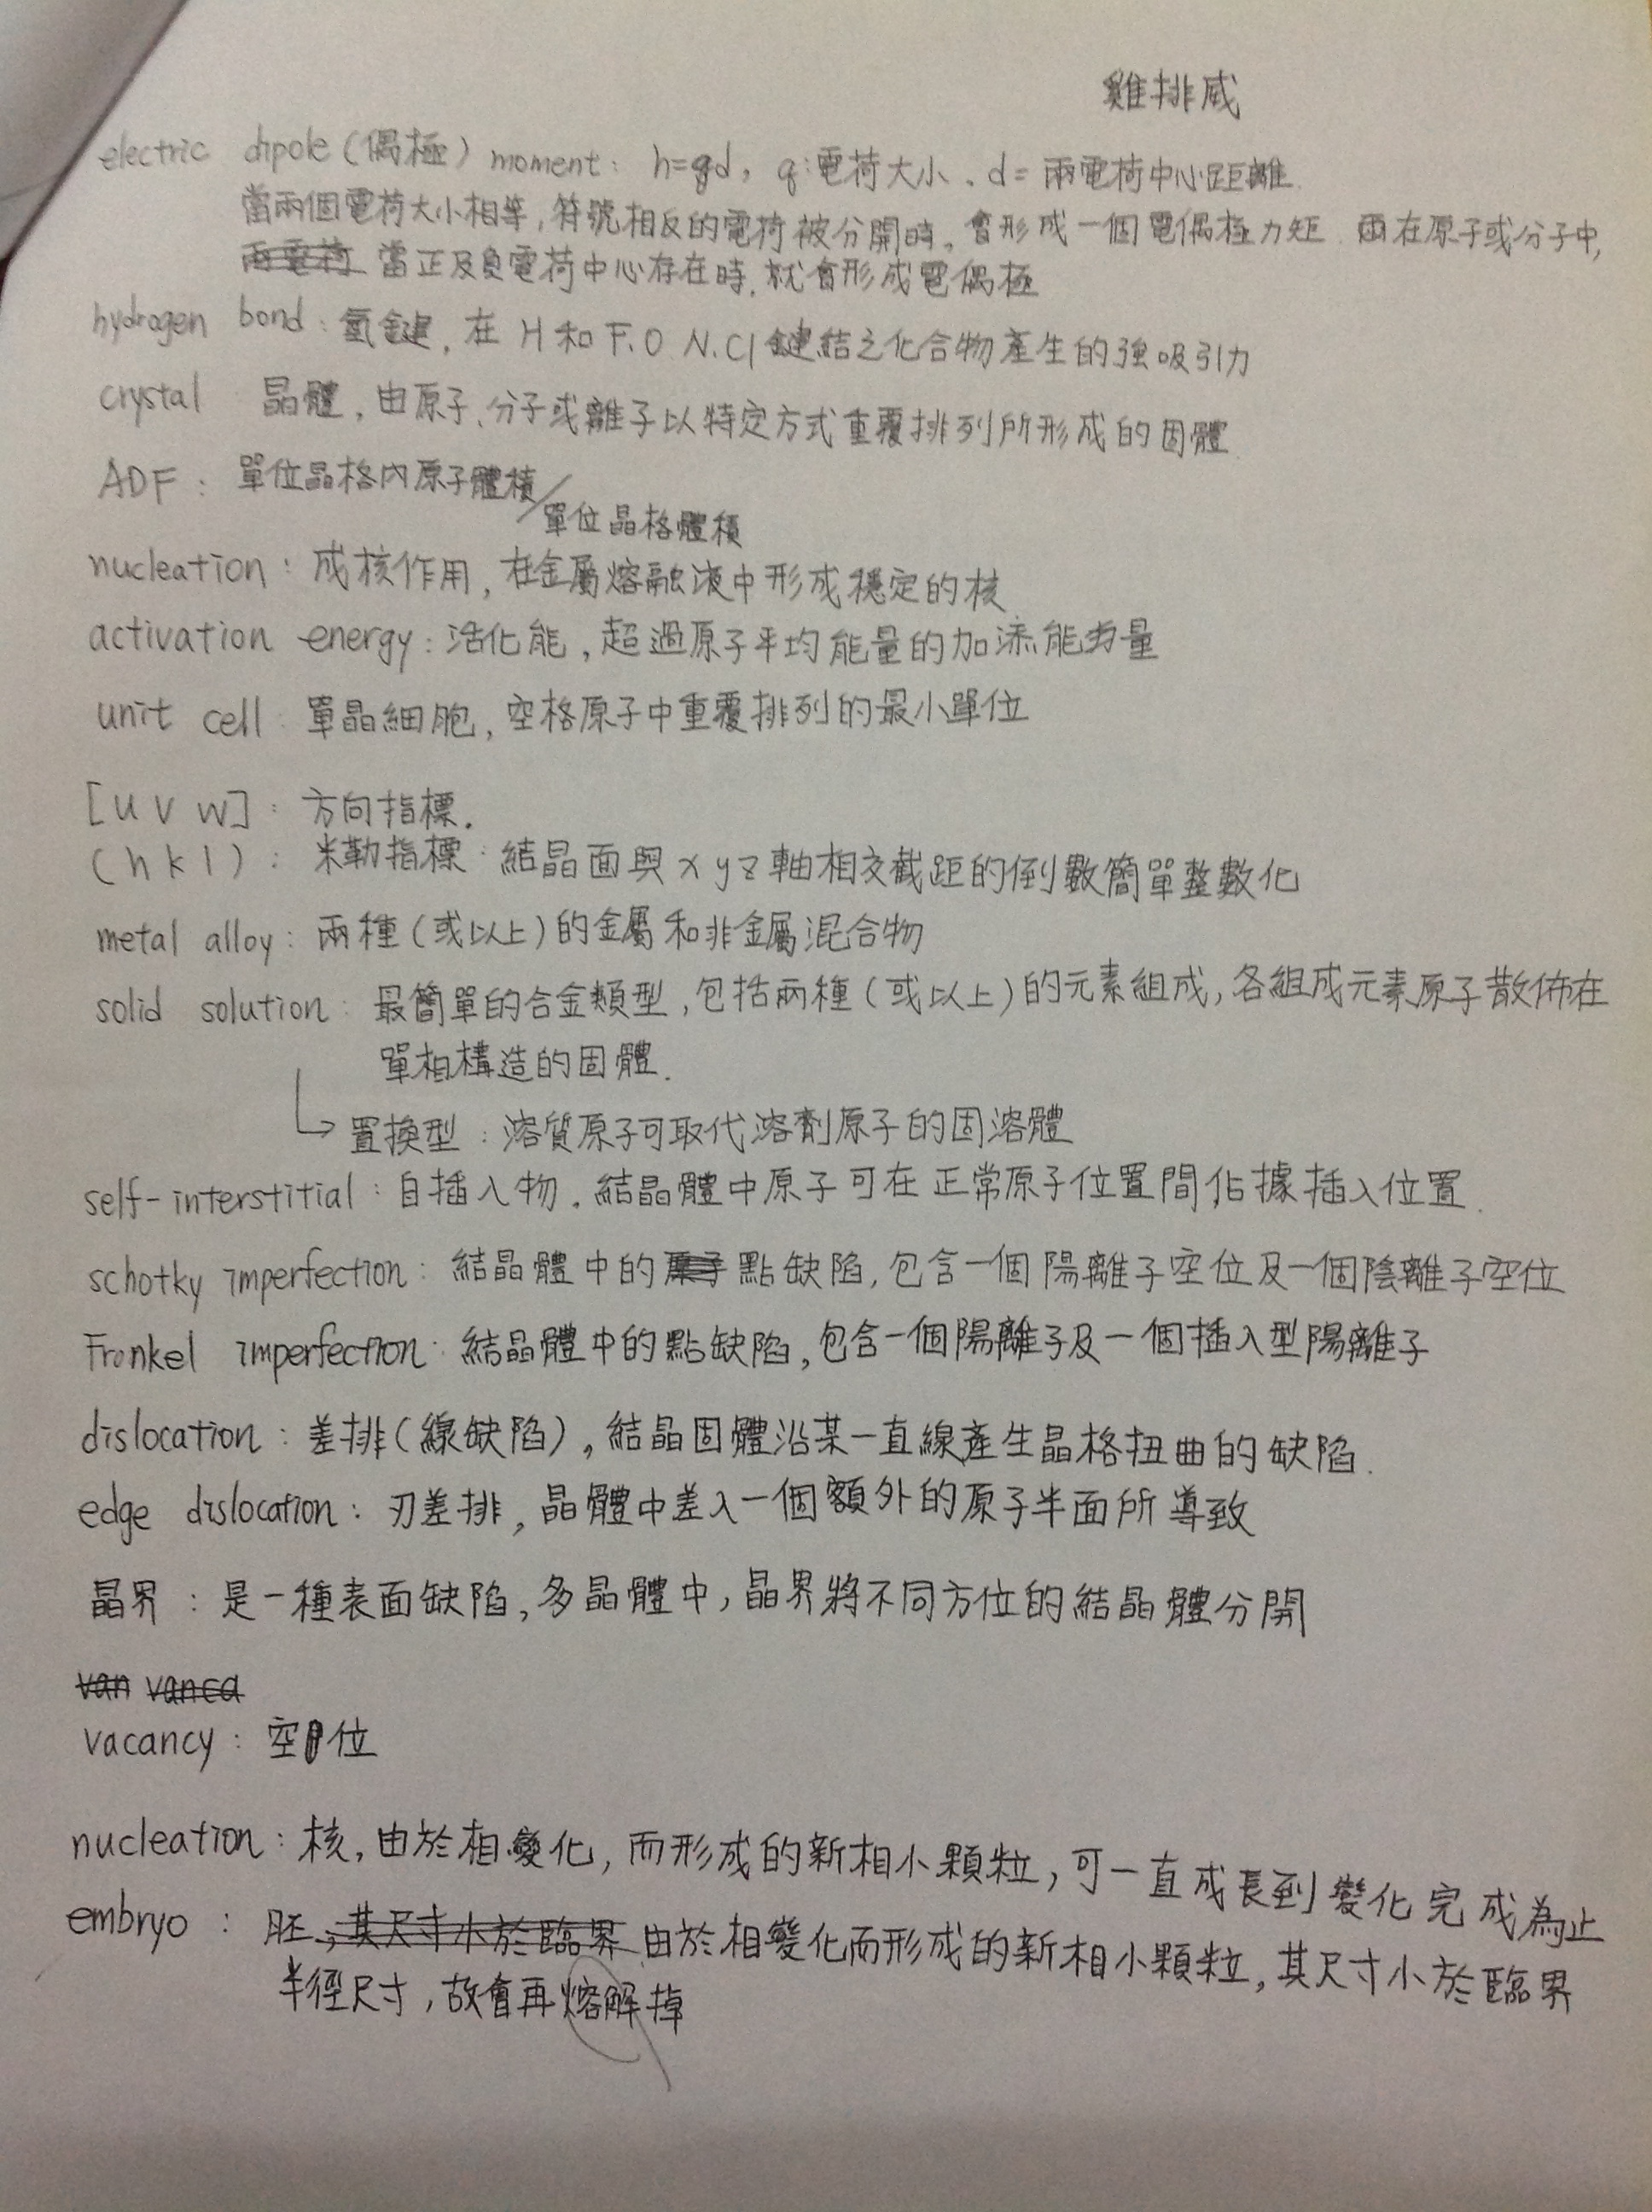 雞排威
electric dipole (偶極) moment: h=qd, q:電荷大小、d= 兩電荷中心距離.
當兩個電荷大小相等,符號相反的電荷被分開時,會形成一個電偶極力矩. 而在原子或分子中,
兩電荷 當正及負電荷中心存在時,就會形成電偶極
hydrogen bond: 氫鍵, 在 H 和 F.O N.Cl 鍵結之化合物產生的強吸引力
crystal 晶體, 由原子、分子或離子以特定方式重覆排列所形成的固體.
ADF: 單位晶格內原子體積/
單位晶格體積
nucleation: 成核作用, 在金屬熔融液中形成穩定的核
activation energy: 活化能, 超過原子平均能量的加添能量
unit cell: 單晶細胞, 空格原子中重覆排列的最小單位
[u v w]: 方向指標.
(h k l): 米勒指標: 結晶面與 x y z 軸相交截距的倒數簡單整數化
metal alloy: 兩種(或以上)的金屬和非金屬混合物
solid solution: 最簡單的合金類型, 包括兩種(或以上)的元素組成, 各組成元素原子散佈在
單相構造的固體.
↳ 置換型: 溶質原子可取代溶劑原子的固溶體
self-interstitial: 自插入物. 結晶體中原子可在正常原子位置間佔據插入位置.
schotky imperfection: 結晶體中的原子點缺陷, 包含一個陽離子空位及一個陰離子空位
Fronkel imperfection: 結晶體中的點缺陷, 包含一個陽離子及一個插入型陽離子
dislocation: 差排(線缺陷), 結晶固體沿某一直線產生晶格扭曲的缺陷.
edge dislocation: 刃差排, 晶體中差入一個額外的原子半面所導致
晶界: 是一種表面缺陷, 多晶體中, 晶界將不同方位的結晶體分開
van vanca
vacancy: 空位
nucleation: 核, 由於相變化, 而形成的新相小顆粒, 可一直成長到變化完成為止
embryo: 胚, 其尺寸小於臨界 由於相變化而形成的新相小顆粒, 其尺寸小於臨界
半徑尺寸, 故會再熔解掉